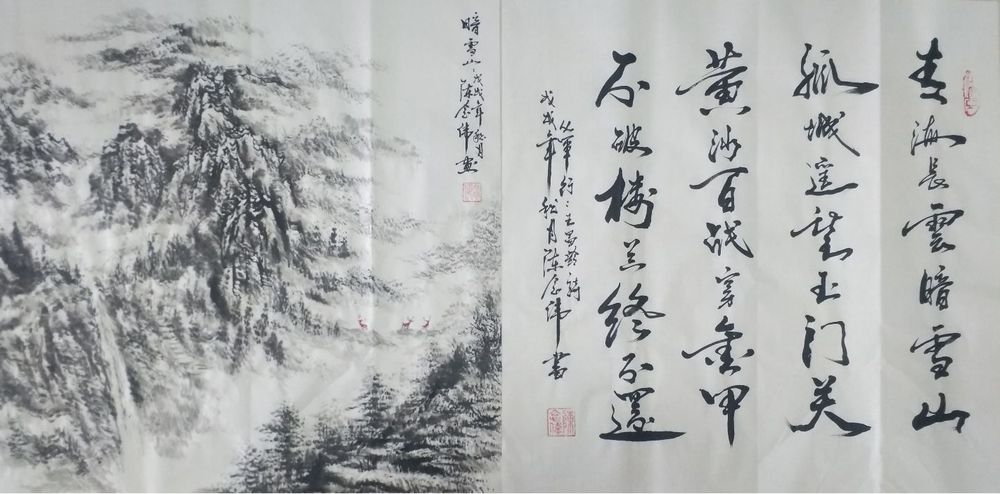 青海長雲暗雪山
孤城遥望玉门关
黄沙百战穿金甲
不破楼兰终不還
从军行：王昌龄诗
戊戌年秋月陈念伟书
暗雪山：戊戌年秋月
陈念伟画